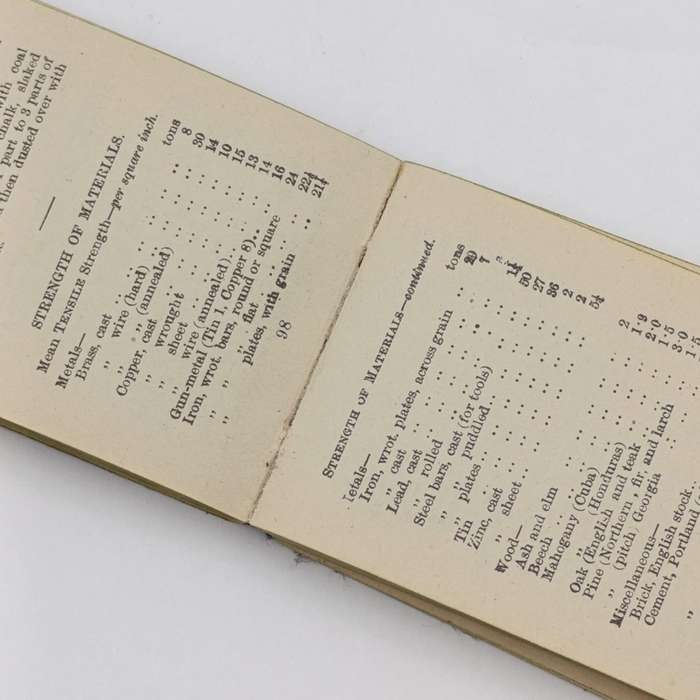 with coal
chalk, slaked
1 part to 3 parts of
then dusted over with
STRENGTH OF MATERIALS.
Mean TENSILE Strength—per square inch.
Metals— tons
Brass, cast .. .. .. 8
„ wire (hard) .. .. 30
„ „ (annealed) .. 14
Copper, cast .. .. 10
„ wrought .. .. 15
„ sheet .. .. 13
„ wire (annealed).. .. 14
Gun-metal (Tin 1, Copper 8).. 16
Iron, wrot. bars, round or square 24
„ „ flat .. .. 22½
„ plates, with grain .. 21½
98
STRENGTH OF MATERIALS—continued.
etals— tons
Iron, wrot. plates, across grain 20
„ cast .. .. 7
Lead, cast .. ..
„ rolled .. .. 1½
Steel bars, cast (for tools) 50
„ „ puddled .. .. 27
„ plates .. .. 36
Tin cast .. .. 2
Zinc, cast .. .. 2
„ sheet .. .. 5½
Wood—
Ash and elm .. .. 2
Beech .. .. 1·9
Mahogany (Cuba) .. 2·0
„ (Honduras) .. 1·5
Oak (English) and teak 3·0
Pine (Northern), fir, and larch
„ (pitch) Georgia
Miscellaneous—
Brick, English stock
Cement, Portland
„